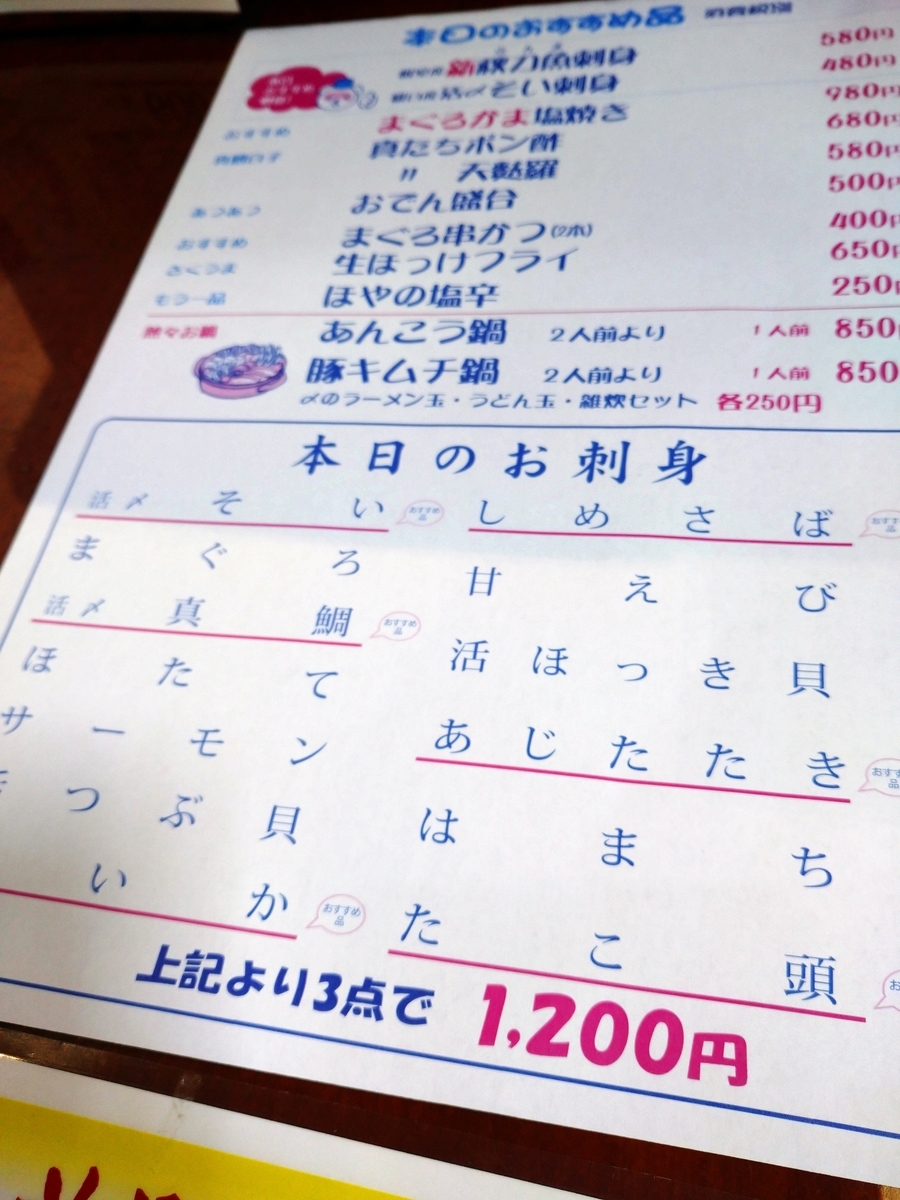 本日のおすすめ品 消費税別
新秋刀魚刺身 580円
活〆そい刺身 480円
おすすめ まぐろかま塩焼き 980円
真鱈白子 真たちポン酢 680円
〃 天麩羅 580円
あつあつ おでん盛合 500円
おすすめ まぐろ串かつ(2本) 400円
さくうま 生ほっけフライ 650円
もう一品 ほやの塩辛 250円
熱々お鍋 あんこう鍋 2人前より 1人前 850円
豚キムチ鍋 2人前より 1人前 850
〆のラーメン玉・うどん玉・雑炊セット 各250円
本日のお刺身
活〆 そい おすすめ品
まぐろ
活〆 真鯛 おすすめ品
ほたて
サーモン
つぶ貝
いか おすすめ品
しめさば おすすめ
甘えび
活ほっき貝
あじたたき おすす
はまち
たこ頭 お
上記より3点で 1,200円